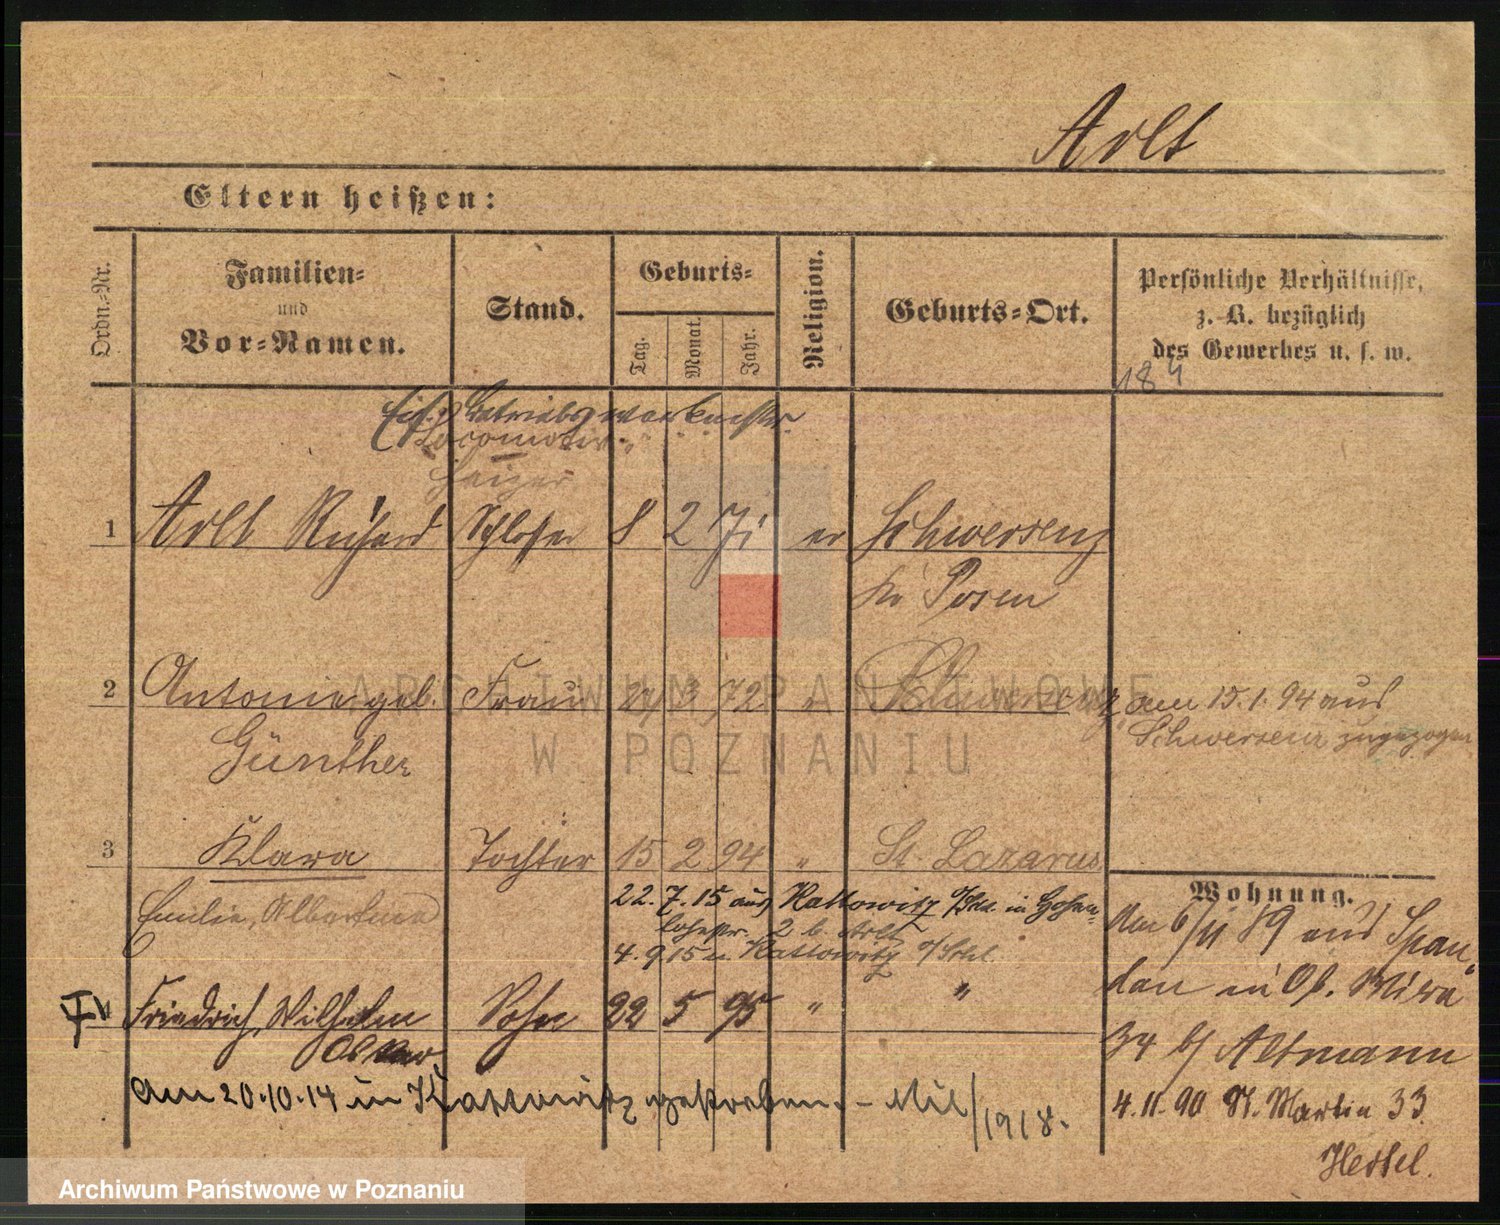 Arlt
Eltern heißen:
Ordn.-Nr.
Familien-
und
Vor-Namen.
Stand.
Geburts-
Tag.
Monat.
Jahr.
Religion.
Geburts-Ort.
Persönliche Verhältnisse,
z. B. bezüglich
des Gewerbes u. s. w.
189
Betriebswerkmstr.
Locomotiv
Heizer
1 Arlt Richard Schlosser 8 2 71 ev Schwersenz
Kr Posen
2 Antonie geb. Frau 3 72 " Schwersenz am 15.1.94 aus
Günther Schwersenz zugezogen
3 Klara Tochter 15 2 94 " St. Lazarus
Emilie, Albertine
22.7.15 aus Kattowitz in Hohen-
lohestr. 2 b. Arlt
4.9.15 n. Kattowitz
Friedrich, Wilhelm Sohn 22 5 95 " "
Oskar
am 20.10.14 in Kattowitz gestorben. - Mil/1918.
Wohnung.
Am 6/11 89 aus Span-
dau in Ob. Wilda
34 b/ Altmann
4.11.90 St. Martin 33
ARCHIWUM PAŃSTWOWE
W POZNANIU
Archiwum Państwowe w Poznaniu